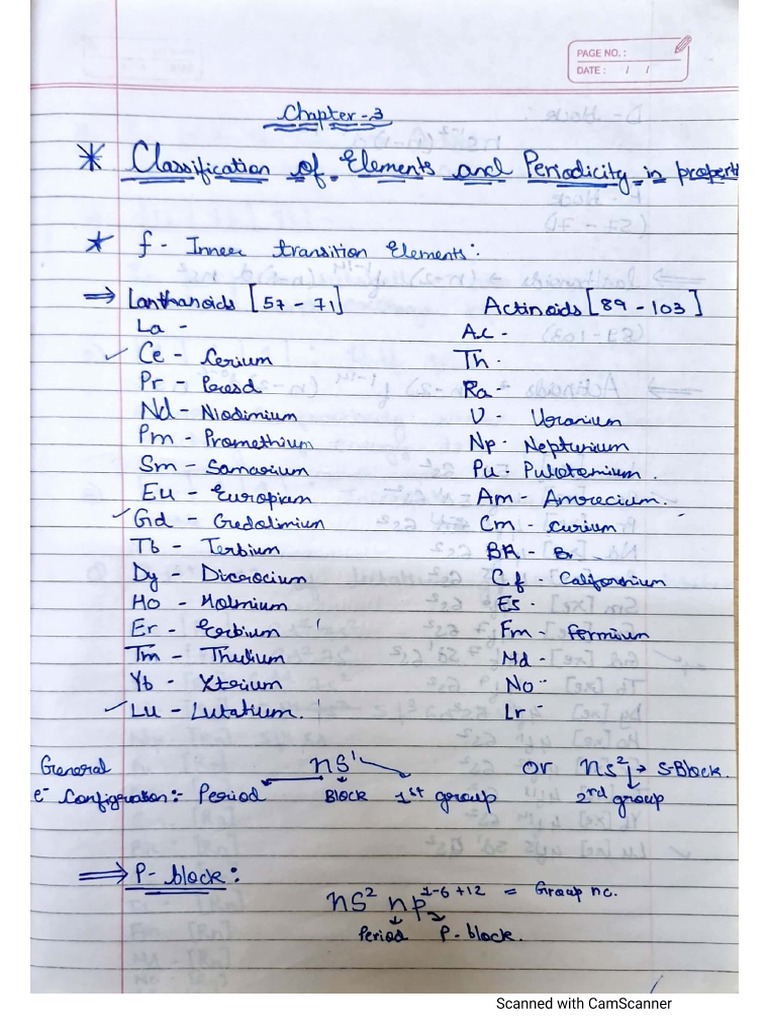 PAGE NO.:
DATE: / /
Chapter-3
* Classification of Elements and Periodicity in propert
* f - Inner transition Elements:
⇒ Lanthanoids [57 - 71] Actinoids [89 - 103]
La - Ac -
✓ Ce - Cerium Th -
Pr - Ra -
Nd - Niodimium U - Uranium
Pm - Promethium Np - Neptunium
Sm - Samarium Pu - Pulotonium.
Eu - Europium Am - Amrecium.
✓ Gd - Gedolimium Cm - Curium
Tb - Terbium BR - Br
Dy - Disrocium Cf - Californium
Ho - Holmium Es -
Er - Erbium Fm - Fermium
Tm - Thulium Md -
Yb - Yterium No -
✓ Lu - Lutatium. Lr -
General ns¹ or ns² → S-Block.
e⁻ Configuration:- Period Block 1st group 2nd group
⇒ P- block:
ns² np¹⁻⁶ +12 = Group no.
Period P-block.
Scanned with CamScanner